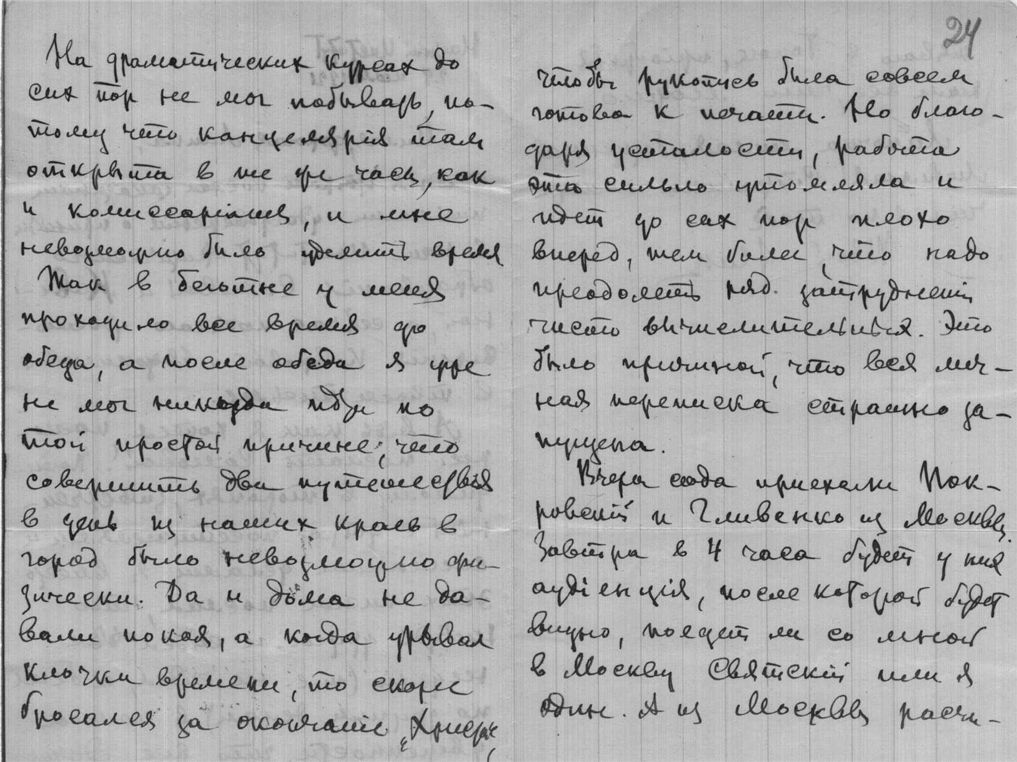 На драматических курсах до
сих пор не мог побывать, по-
тому что канцелярія там
открыта в те же часы, как
и комиссаріат, и мне
невозможно было уделить время
Так в беготне у меня
проходило все время до
обеда, а после обеда я уже
не мог никогда по
той простой причине, что
совершить два путешествія
в день из наших краев в
город было невозможно фи-
зически. Да и дома не да-
вали покоя, а когда урывал
клочки времени, то скорее
бросался за окончаніе
24
чтобы рукопись была совсем
готова к печати. Но благо-
даря усталости, работа
эта сильно утомляла и
идет до сих пор плохо
вперед, тем более, что надо
преодолеть ряд затрудненій
чисто вычислительных. Это
было причиной, что вся лич-
ная переписка страшно за-
пущена.
Вчера сюда приехали Пок-
ровскій и Гливенко из Москвы.
Завтра в 4 часа будет у них
аудіенція, после которой будет
видно, поедет ли со мной
в Москву Святскій или я
один. А из Москвы расчи-